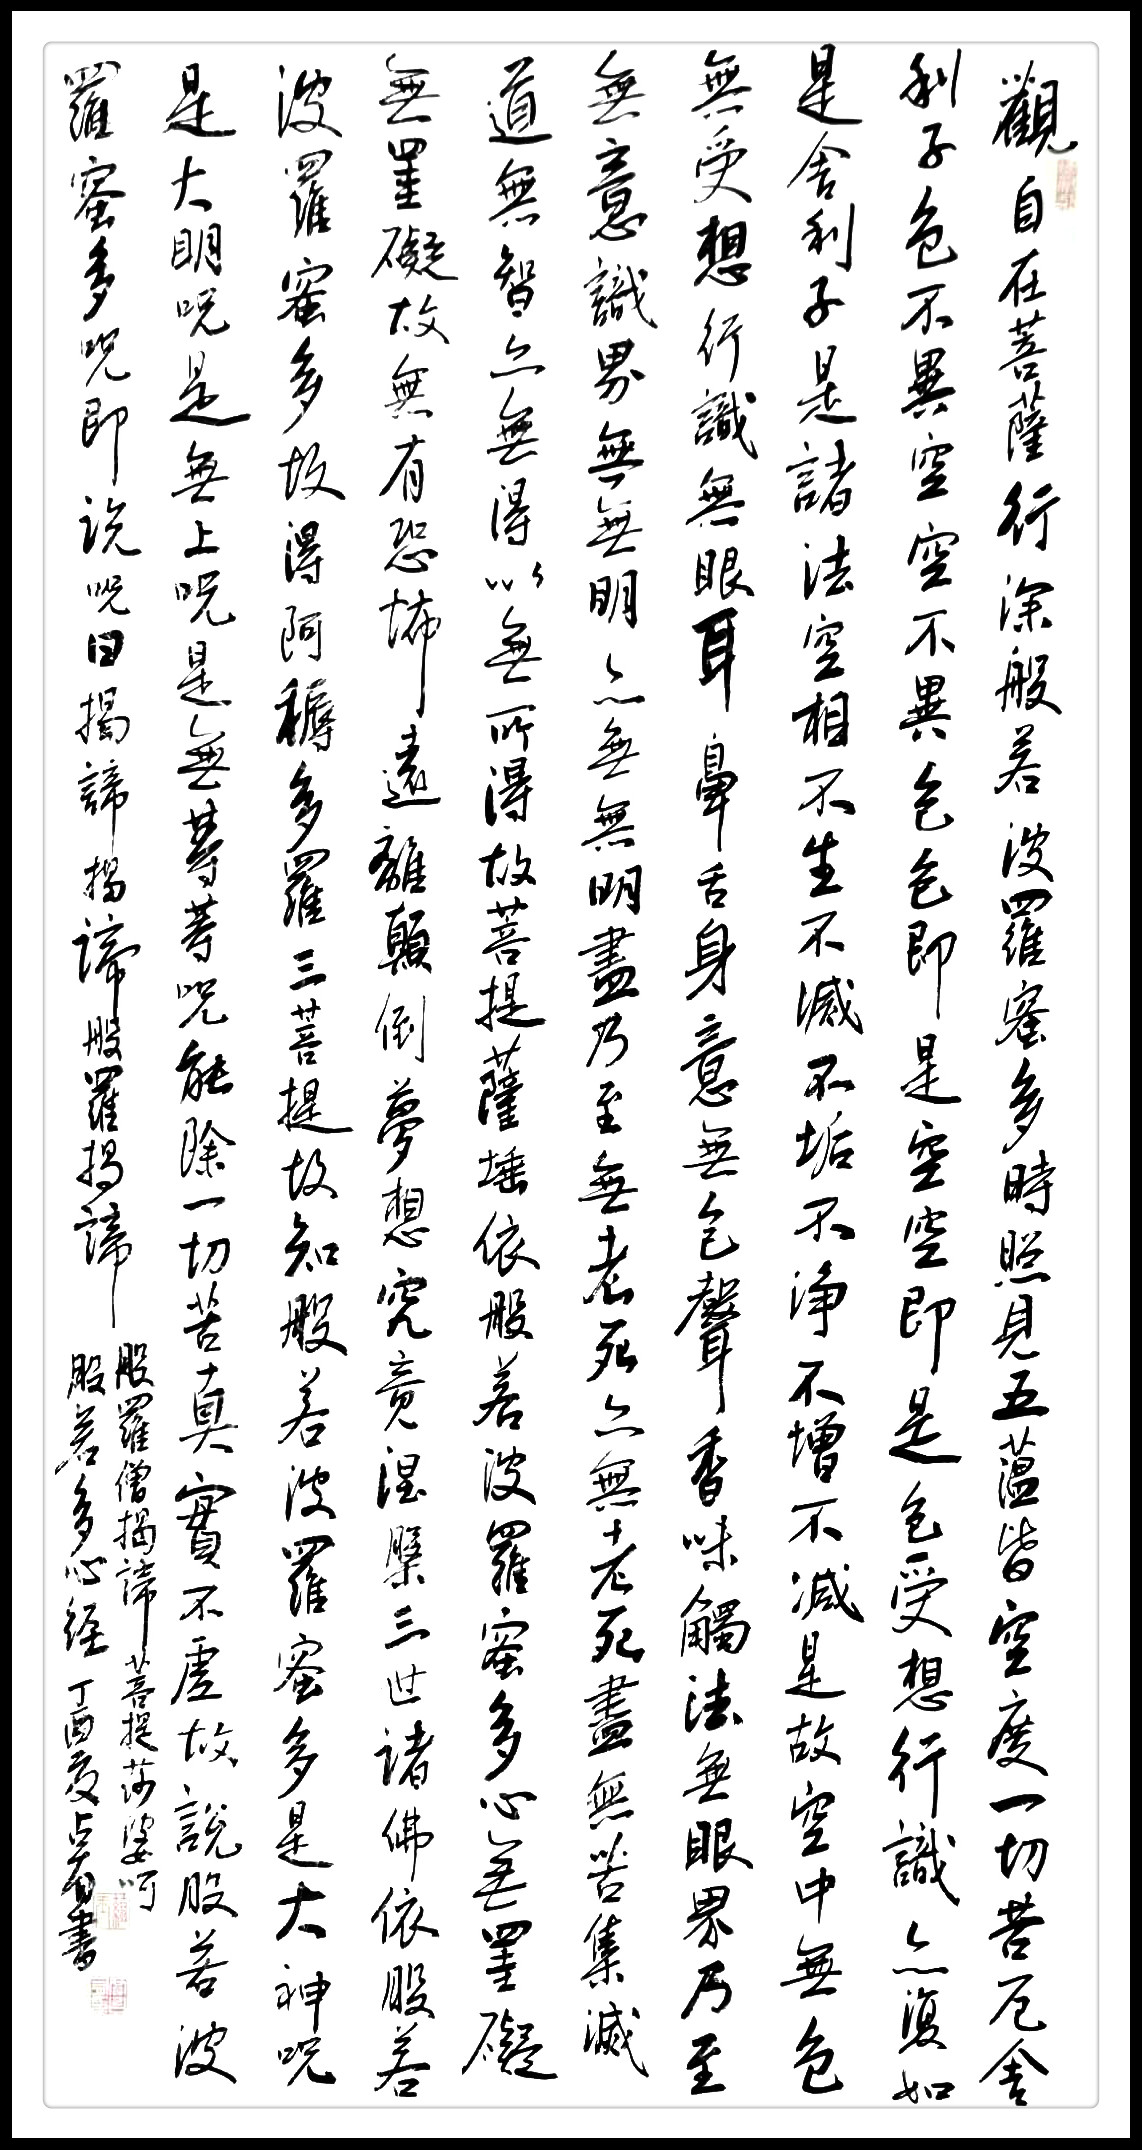 觀自在菩薩行深般若波羅蜜多時照見五蘊皆空度一切苦厄舍
利子色不異空空不異色色即是空空即是色受想行識亦復如
是舍利子是諸法空相不生不滅不垢不淨不增不減是故空中無色
無受想行識無眼耳鼻舌身意無色聲香味觸法無眼界乃至
無意識界無無明亦無無明盡乃至無老死亦無老死盡無苦集滅
道無智亦無得以無所得故菩提薩埵依般若波羅蜜多心無罣礙
無罣礙故無有恐怖遠離顛倒夢想究竟涅槃三世諸佛依般若
波羅蜜多故得阿耨多羅三菩提故知般若波羅蜜多是大神咒
是大明咒是無上咒是無等等咒能除一切苦真實不虛故說般若波
羅蜜多咒即説咒曰揭諦揭諦般羅揭諦
般羅僧揭諦菩提莎婆呵
般若多心經 丁酉夏書